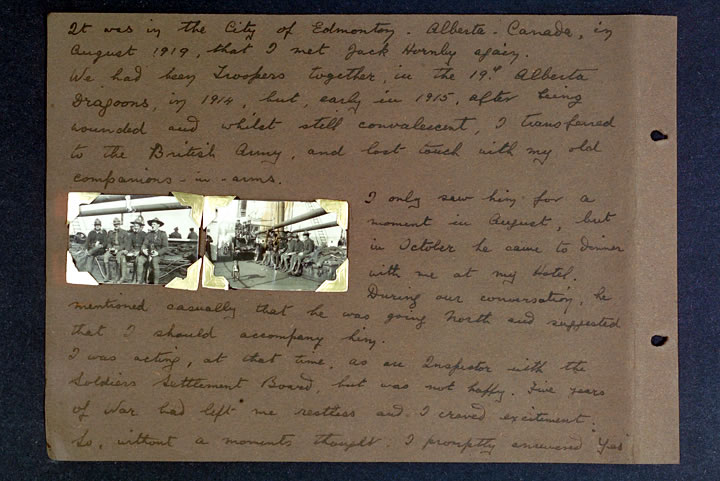 It was in the City of Edmonton - Alberta - Canada, in
August 1919, that I met Jack Hornby again.
We had been Troopers together, in the 19th Alberta
Dragoons, in 1914, but, early in 1915, after being
wounded and whilst still convalescent, I transferred
to the British Army, and lost touch with my old
companions - in - arms.
I only saw him for a
moment in August, but
in October he came to dinner
with me at my Hotel.
During our conversation, he
mentioned casually that he was going North and suggested
that I should accompany him.
I was acting, at that time, as an Inspector with the
Soldiers Settlement Board, but was not happy. Five years
of War had left me restless and I craved excitement.
So, without a moments thought, I promptly answered "Yes"